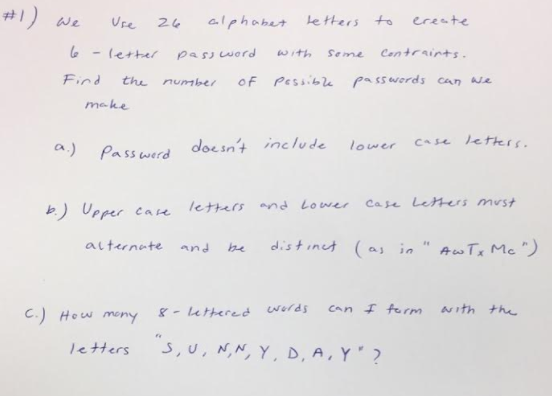 #1) We Use 26 alphabet letters to create
6-letter password with some contraints.
Find the number of possible passwords can we
make
a.) Password doesn't include lower case letters.
b.) Upper case letters and Lower case Letters must
alternate and be distinct (as in "AwTxMc")
C.) How many 8-lettered words can I form with the
letters "S, U, N, N, Y, D, A, Y"?